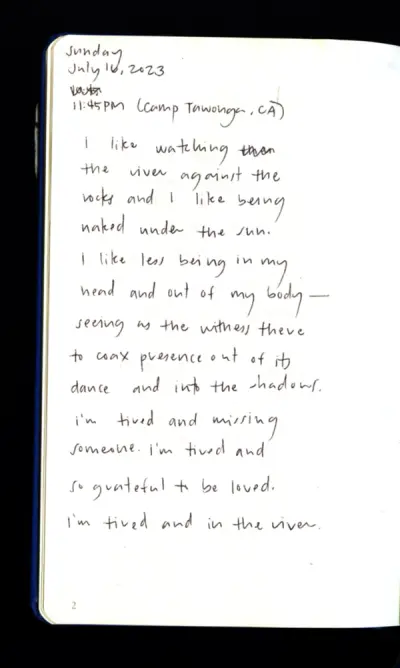 sunday
july 16, 2023
11:45PM (Camp Tawonga, CA)
i like watching
the river against the
rocks and i like being
naked under the sun.
i like less being in my
head and out of my body —
seeing as the witness there
to coax presence out of its
dance and into the shadows.
i'm tired and missing
someone. i'm tired and
so grateful to be loved.
i'm tired and in the river.
2